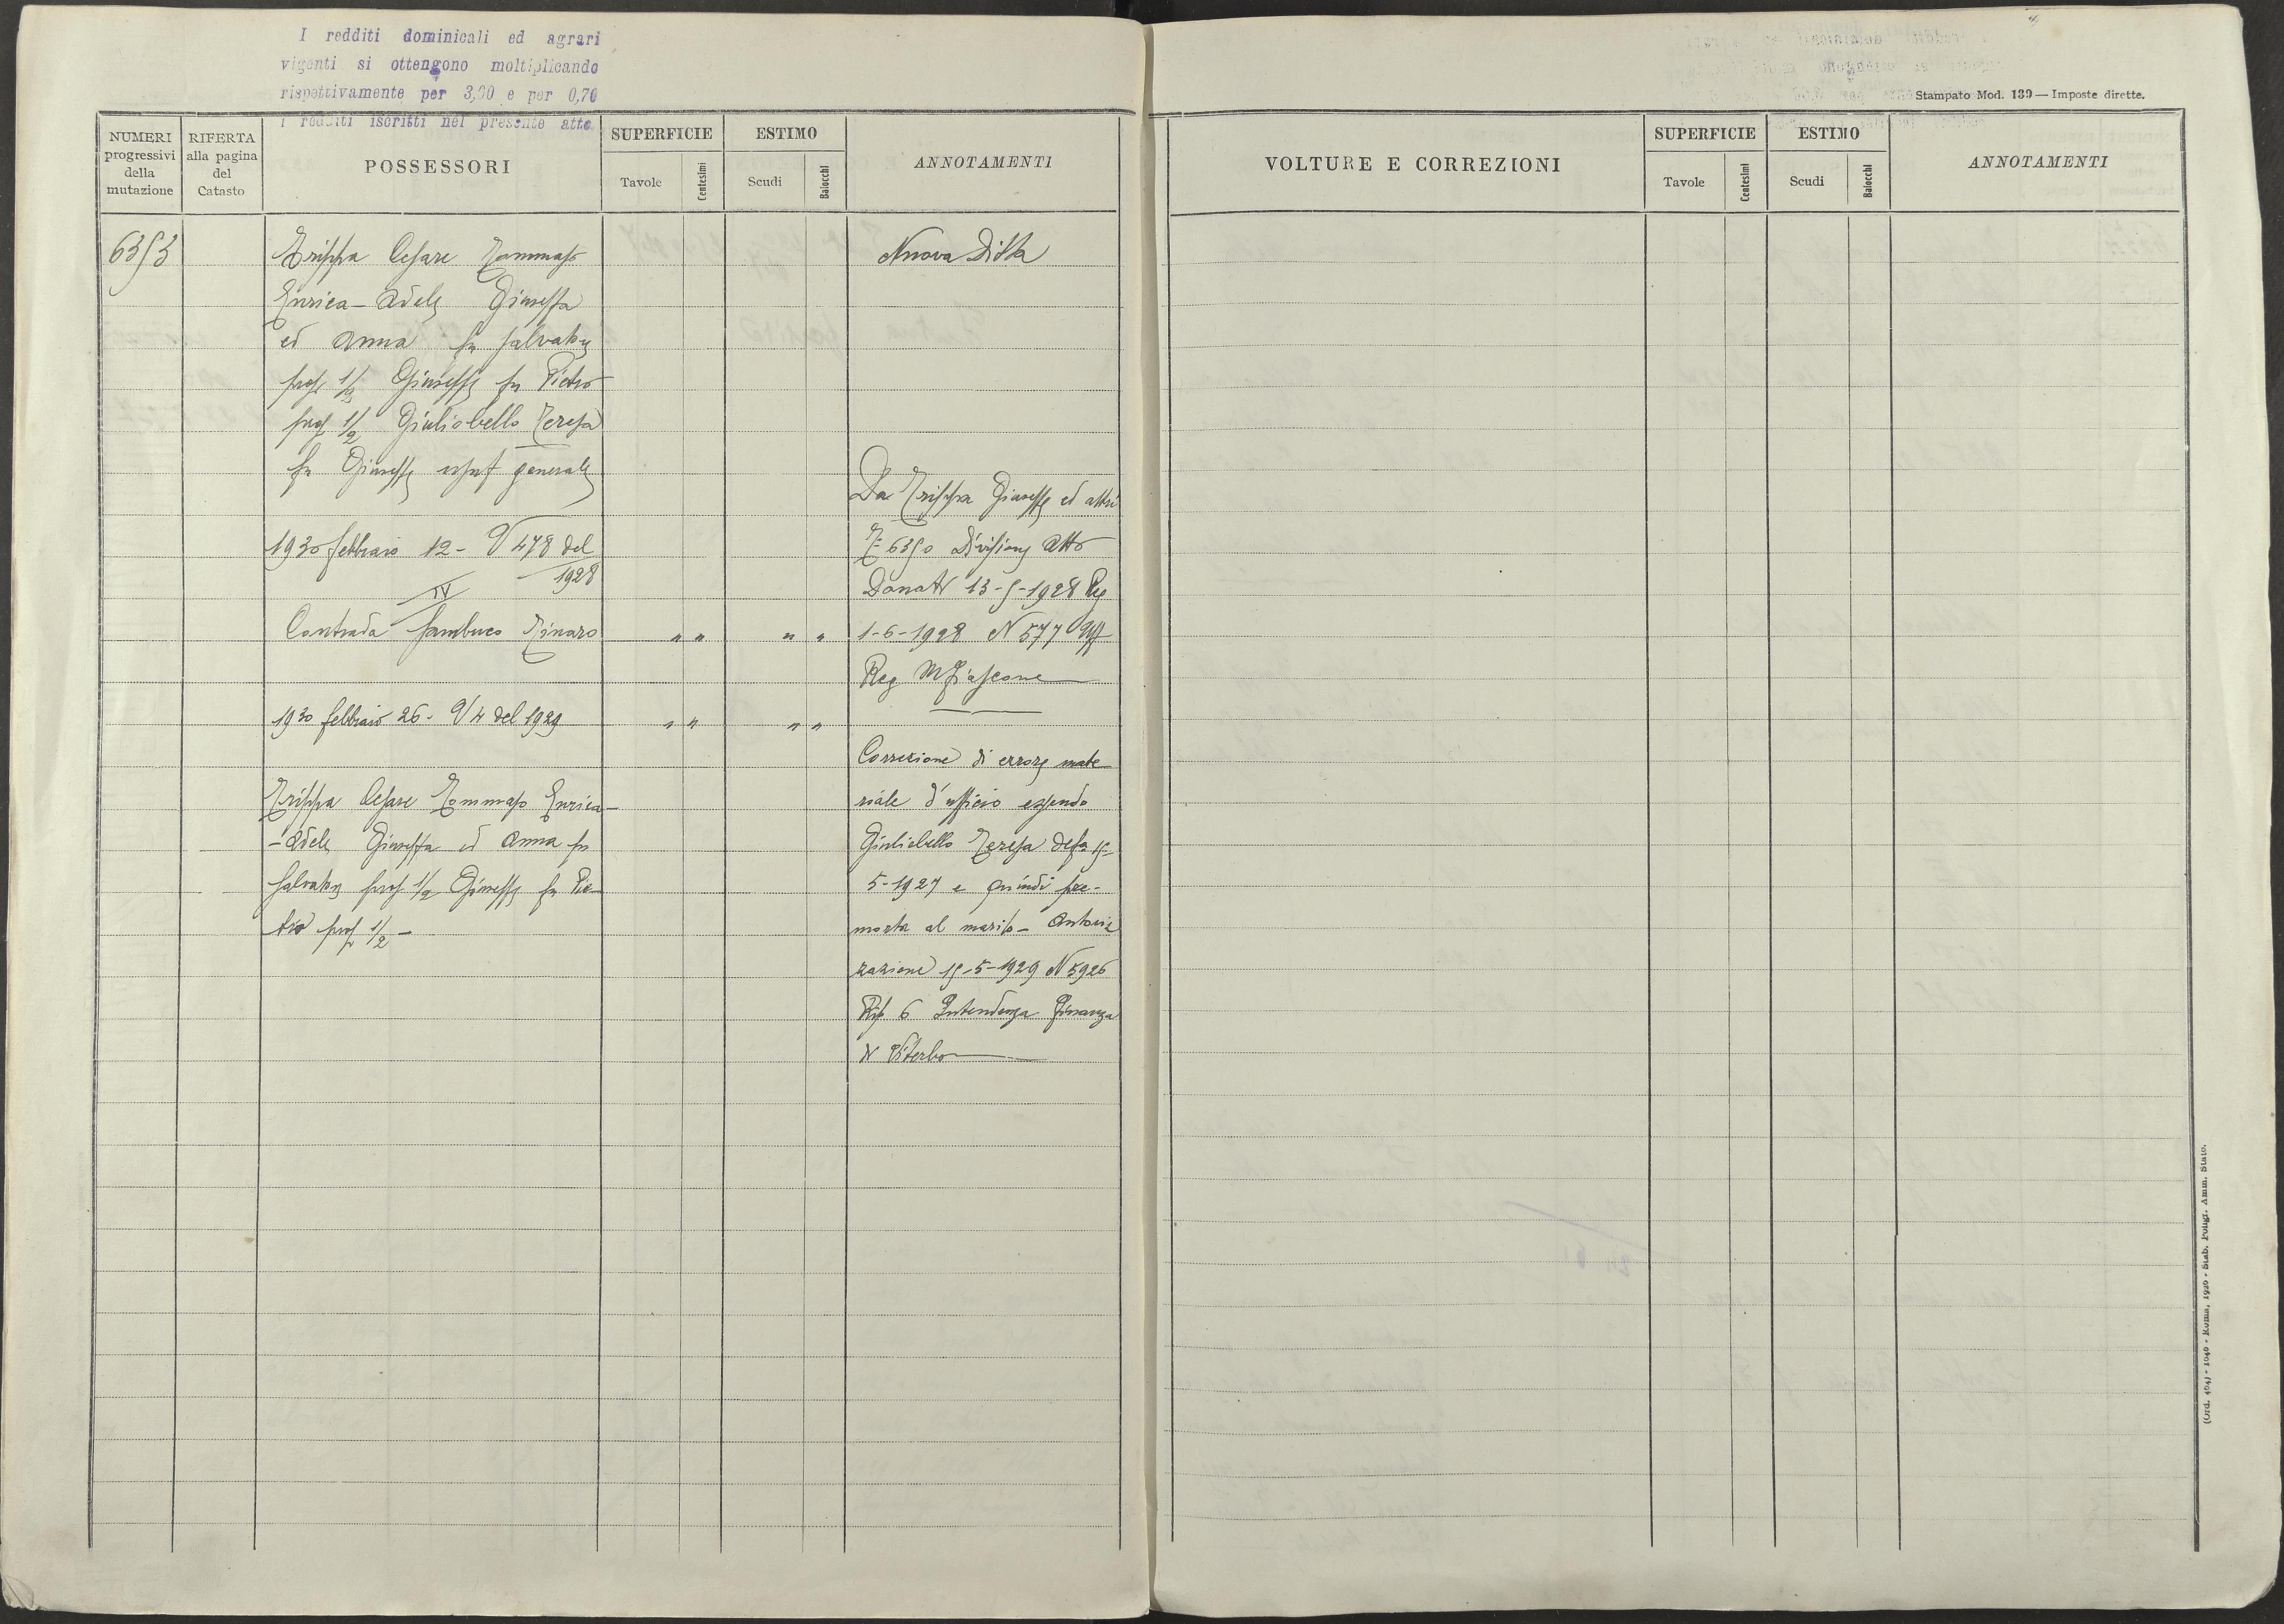 I redditi dominicali ed agrari
vigenti si ottengono moltiplicando
rispettivamente per 3,60 e per 0,70
i redditi iscritti nel presente atto
Stampato Mod. 139 — Imposte dirette.
NUMERI progressivi della mutazione
RIFERTA alla pagina del Catasto
POSSESSORI
SUPERFICIE
Tavole
Centesimi
ESTIMO
Scudi
Baiocchi
ANNOTAMENTI
VOLTURE E CORREZIONI
SUPERFICIE
Tavole
Centesimi
ESTIMO
Scudi
Baiocchi
ANNOTAMENTI
6353
Trippa Cesare Tommaso
Enrica-Adele Giuseppa
ed Anna fu Salvatore
prop 1/2 Giuseppe fu Pietro
prop 1/2 Giuliobello Teresa
fu Giuseppe usuf generale
1930 febbraio 12 - V 478 del
1928
IV
Contrada Sambuco Tinaro " " " "
1930 febbraio 26 - V 4 del 1929 " " " "
Trippa Cesare Tommaso Enrica-
-Adele Giuseppa ed Anna fu
Salvatore prop 1/2 Giuseppe fu Pie-
tro prop 1/2 -
Nuova Ditta
Da Trippa Giuseppe ed altri
6350 Divisione Atto
Donati 13-5-1928 Reg
1-6-1928 N 577 Uff
Reg MFiascone
Correzione di errore mate
riale d'ufficio essendo
Giuliobello Teresa def 15-
5-1927 e quindi pre-
morta al marito - Autoriz
zazione 15-5-1929 N 5926
Rip 6 Intendenza Finanza
di Viterbo
(Ord. 404) - 1040 - Roma, 1920 - Stab. Poligr. Amm. Stato.